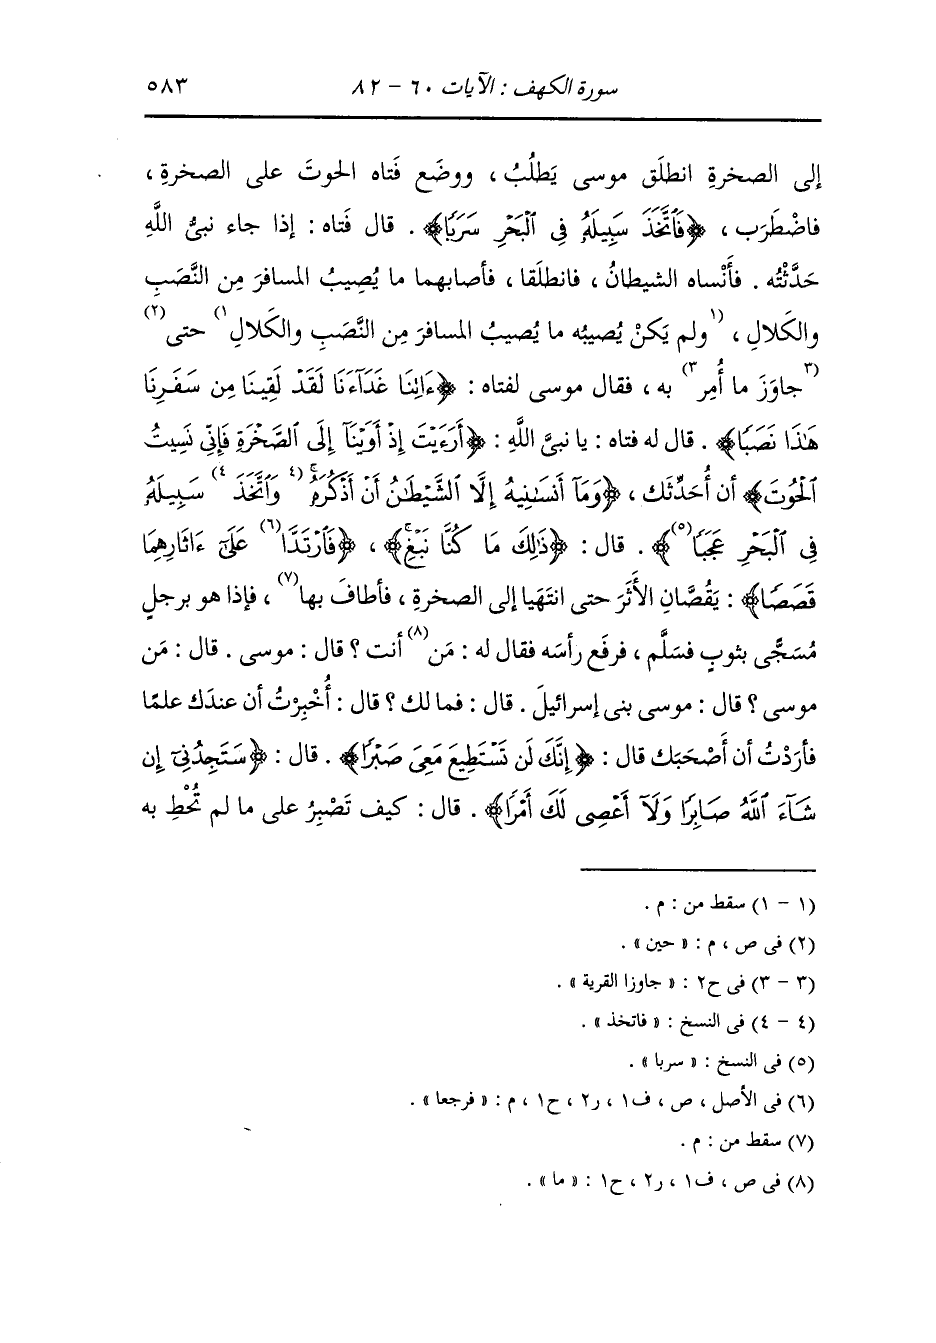 سورة الكهف : الآيات ٦٠ - ٨٢ ٥٨٣
إلى الصخرةِ انطلَق موسى يَطلُبُ ، ووضَع فَتاه الحوتَ على الصخرةِ ،
فاضْطَرَب ، ﴿فَٱتَّخَذَ سَبِيلَهُۥ فِى ٱلْبَحْرِ سَرَبًا﴾ . قال فَتاه : إذا جاء نبىُّ اللَّهِ
حَدَّثْتُه . فأَنْساه الشيطانُ ، فانطلَقا ، فأصابهما ما يُصِيبُ المسافرَ مِن النَّصَبِ
والكَلالِ ، (١ولم يَكنْ يُصيبُه ما يُصيبُ المسافرَ مِن النَّصَبِ والكَلالِ١) حتى(٢)
(٣جاوَزَ ما أُمِر٣) به ، فقال موسى لفتاه : ﴿ءَاتِنَا غَدَآءَنَا لَقَدْ لَقِينَا مِن سَفَرِنَا
هَٰذَا نَصَبًا﴾ . قال له فتاه : يا نبىَّ اللَّهِ : ﴿أَرَءَيْتَ إِذْ أَوَيْنَآ إِلَى ٱلصَّخْرَةِ فَإِنِّى نَسِيتُ
ٱلْحُوتَ﴾ أن أُحَدِّثَك ، ﴿وَمَآ أَنسَىٰنِيهُ إِلَّا ٱلشَّيْطَٰنُ أَنْ أَذْكُرَهُۥۚ (٤وَٱتَّخَذَ٤) سَبِيلَهُۥ
فِى ٱلْبَحْرِ عَجَبًا(٥)﴾ . قال : ﴿ذَٰلِكَ مَا كُنَّا نَبْغِۚ﴾ ، ﴿فَٱرْتَدَّا(٦) عَلَىٰٓ ءَاثَارِهِمَا
قَصَصًا﴾ : يَقُصَّانِ الأَثَرَ حتى انتَهَيا إلى الصخرةِ ، فأطافَ بها(٧) ، فإذا هو برجلٍ
مُسَجًّى بثوبٍ فسَلَّم ، فرفَع رأسَه فقال له : مَن(٨) أنت ؟ قال : موسى . قال : مَن
موسى ؟ قال : موسى بنى إسرائيلَ . قال : فما لك ؟ قال : أُخْبِرْتُ أن عندَك علمًا
فأرَدْتُ أن أَصْحَبَك قال : ﴿إِنَّكَ لَن تَسْتَطِيعَ مَعِىَ صَبْرًا﴾ . قال : ﴿سَتَجِدُنِىٓ إِن
شَآءَ ٱللَّهُ صَابِرًا وَلَآ أَعْصِى لَكَ أَمْرًا﴾ . قال : كيف تَصْبِرُ على ما لم تُحْطِ به
(١ - ١) سقط من : م .
(٢) فى ص ، م : « حين » .
(٣ - ٣) فى ح٢ : « جاوزا القرية » .
(٤ - ٤) فى النسخ : « فاتخذ » .
(٥) فى النسخ : « سربا » .
(٦) فى الأصل ، ص ، ف١ ، ر٢ ، ح١ ، م : « فرجعا » .
(٧) سقط من : م .
(٨) فى ص ، ف١ ، ر٢ ، ح١ : « ما » .